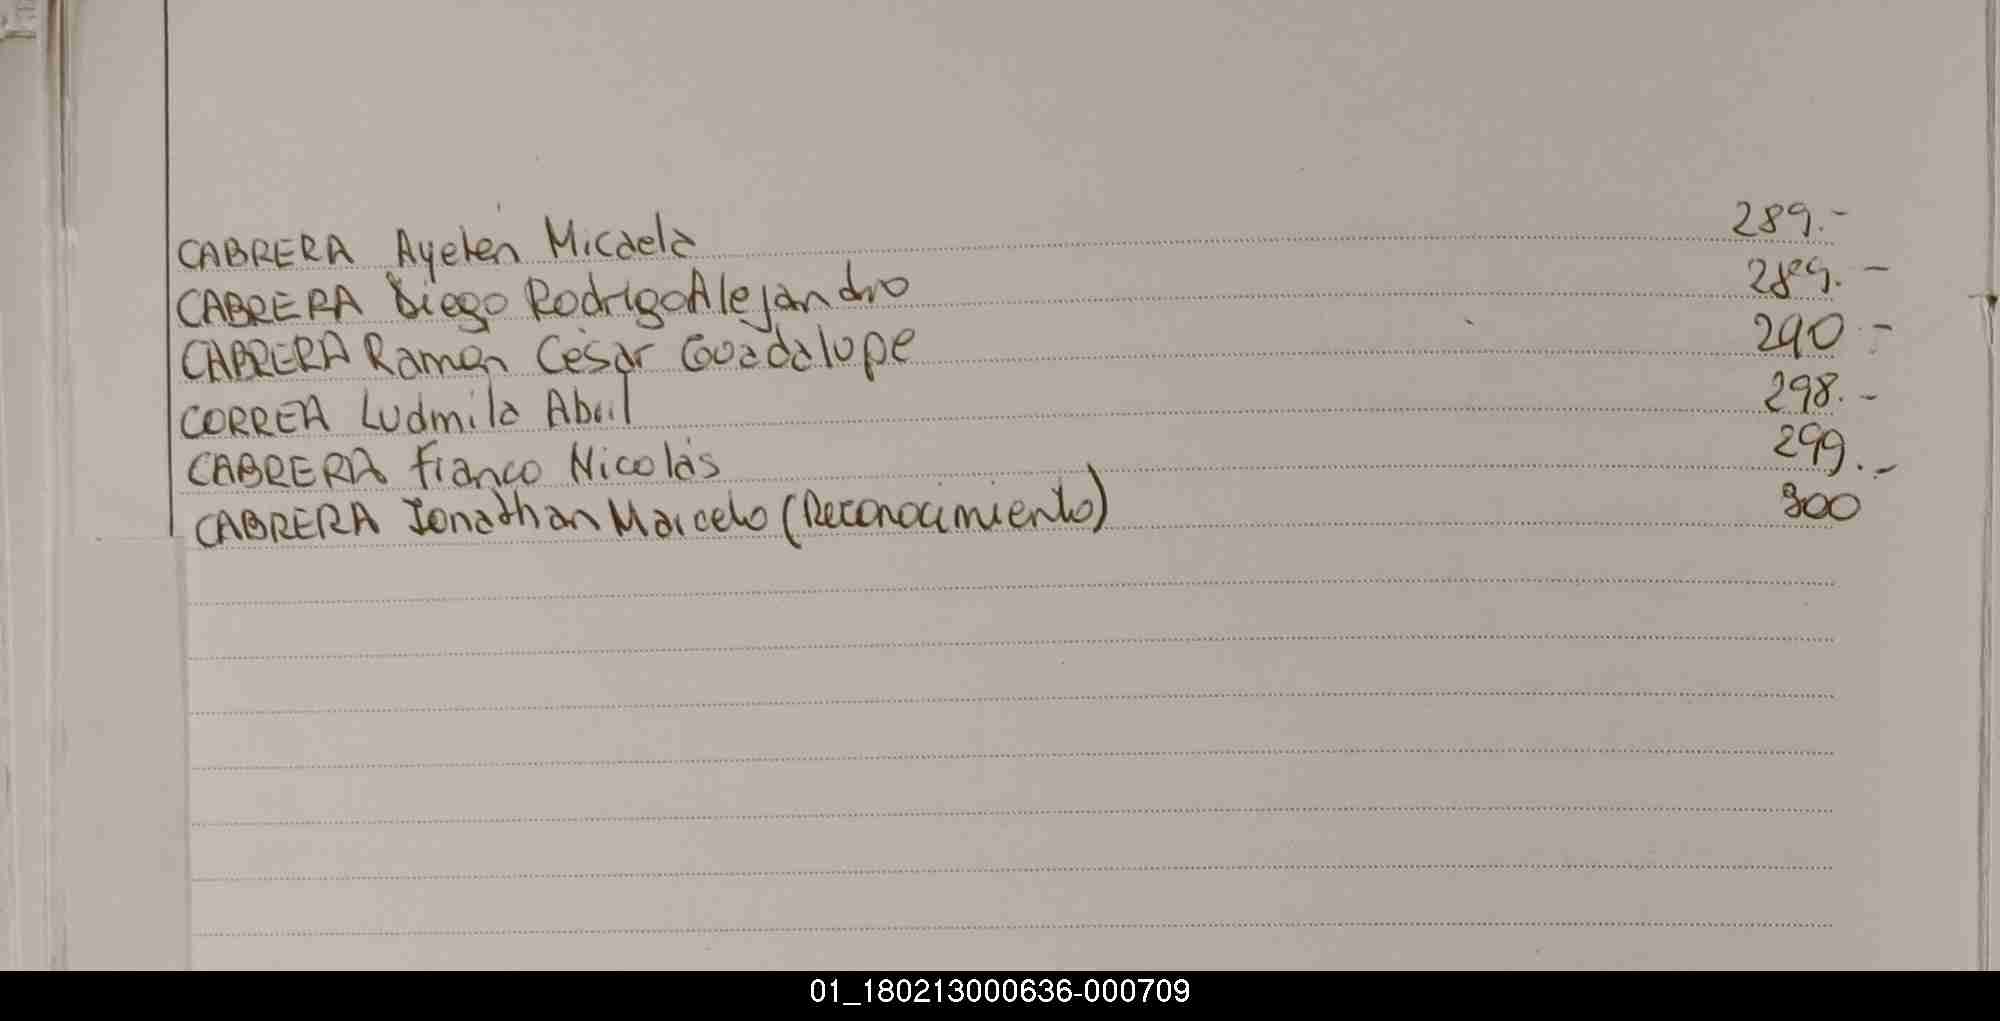 CABRERA Ayelén Micaela 289.-
CABRERA Diego Rodrigo Alejandro 289.-
CABRERA Ramón César Guadalupe 290.-
CORREA Ludmila Abril 298.-
CABRERA Franco Nicolás 299.-
CABRERA Jonathan Marcelo (Reconocimiento) 300
01_180213000636-000709